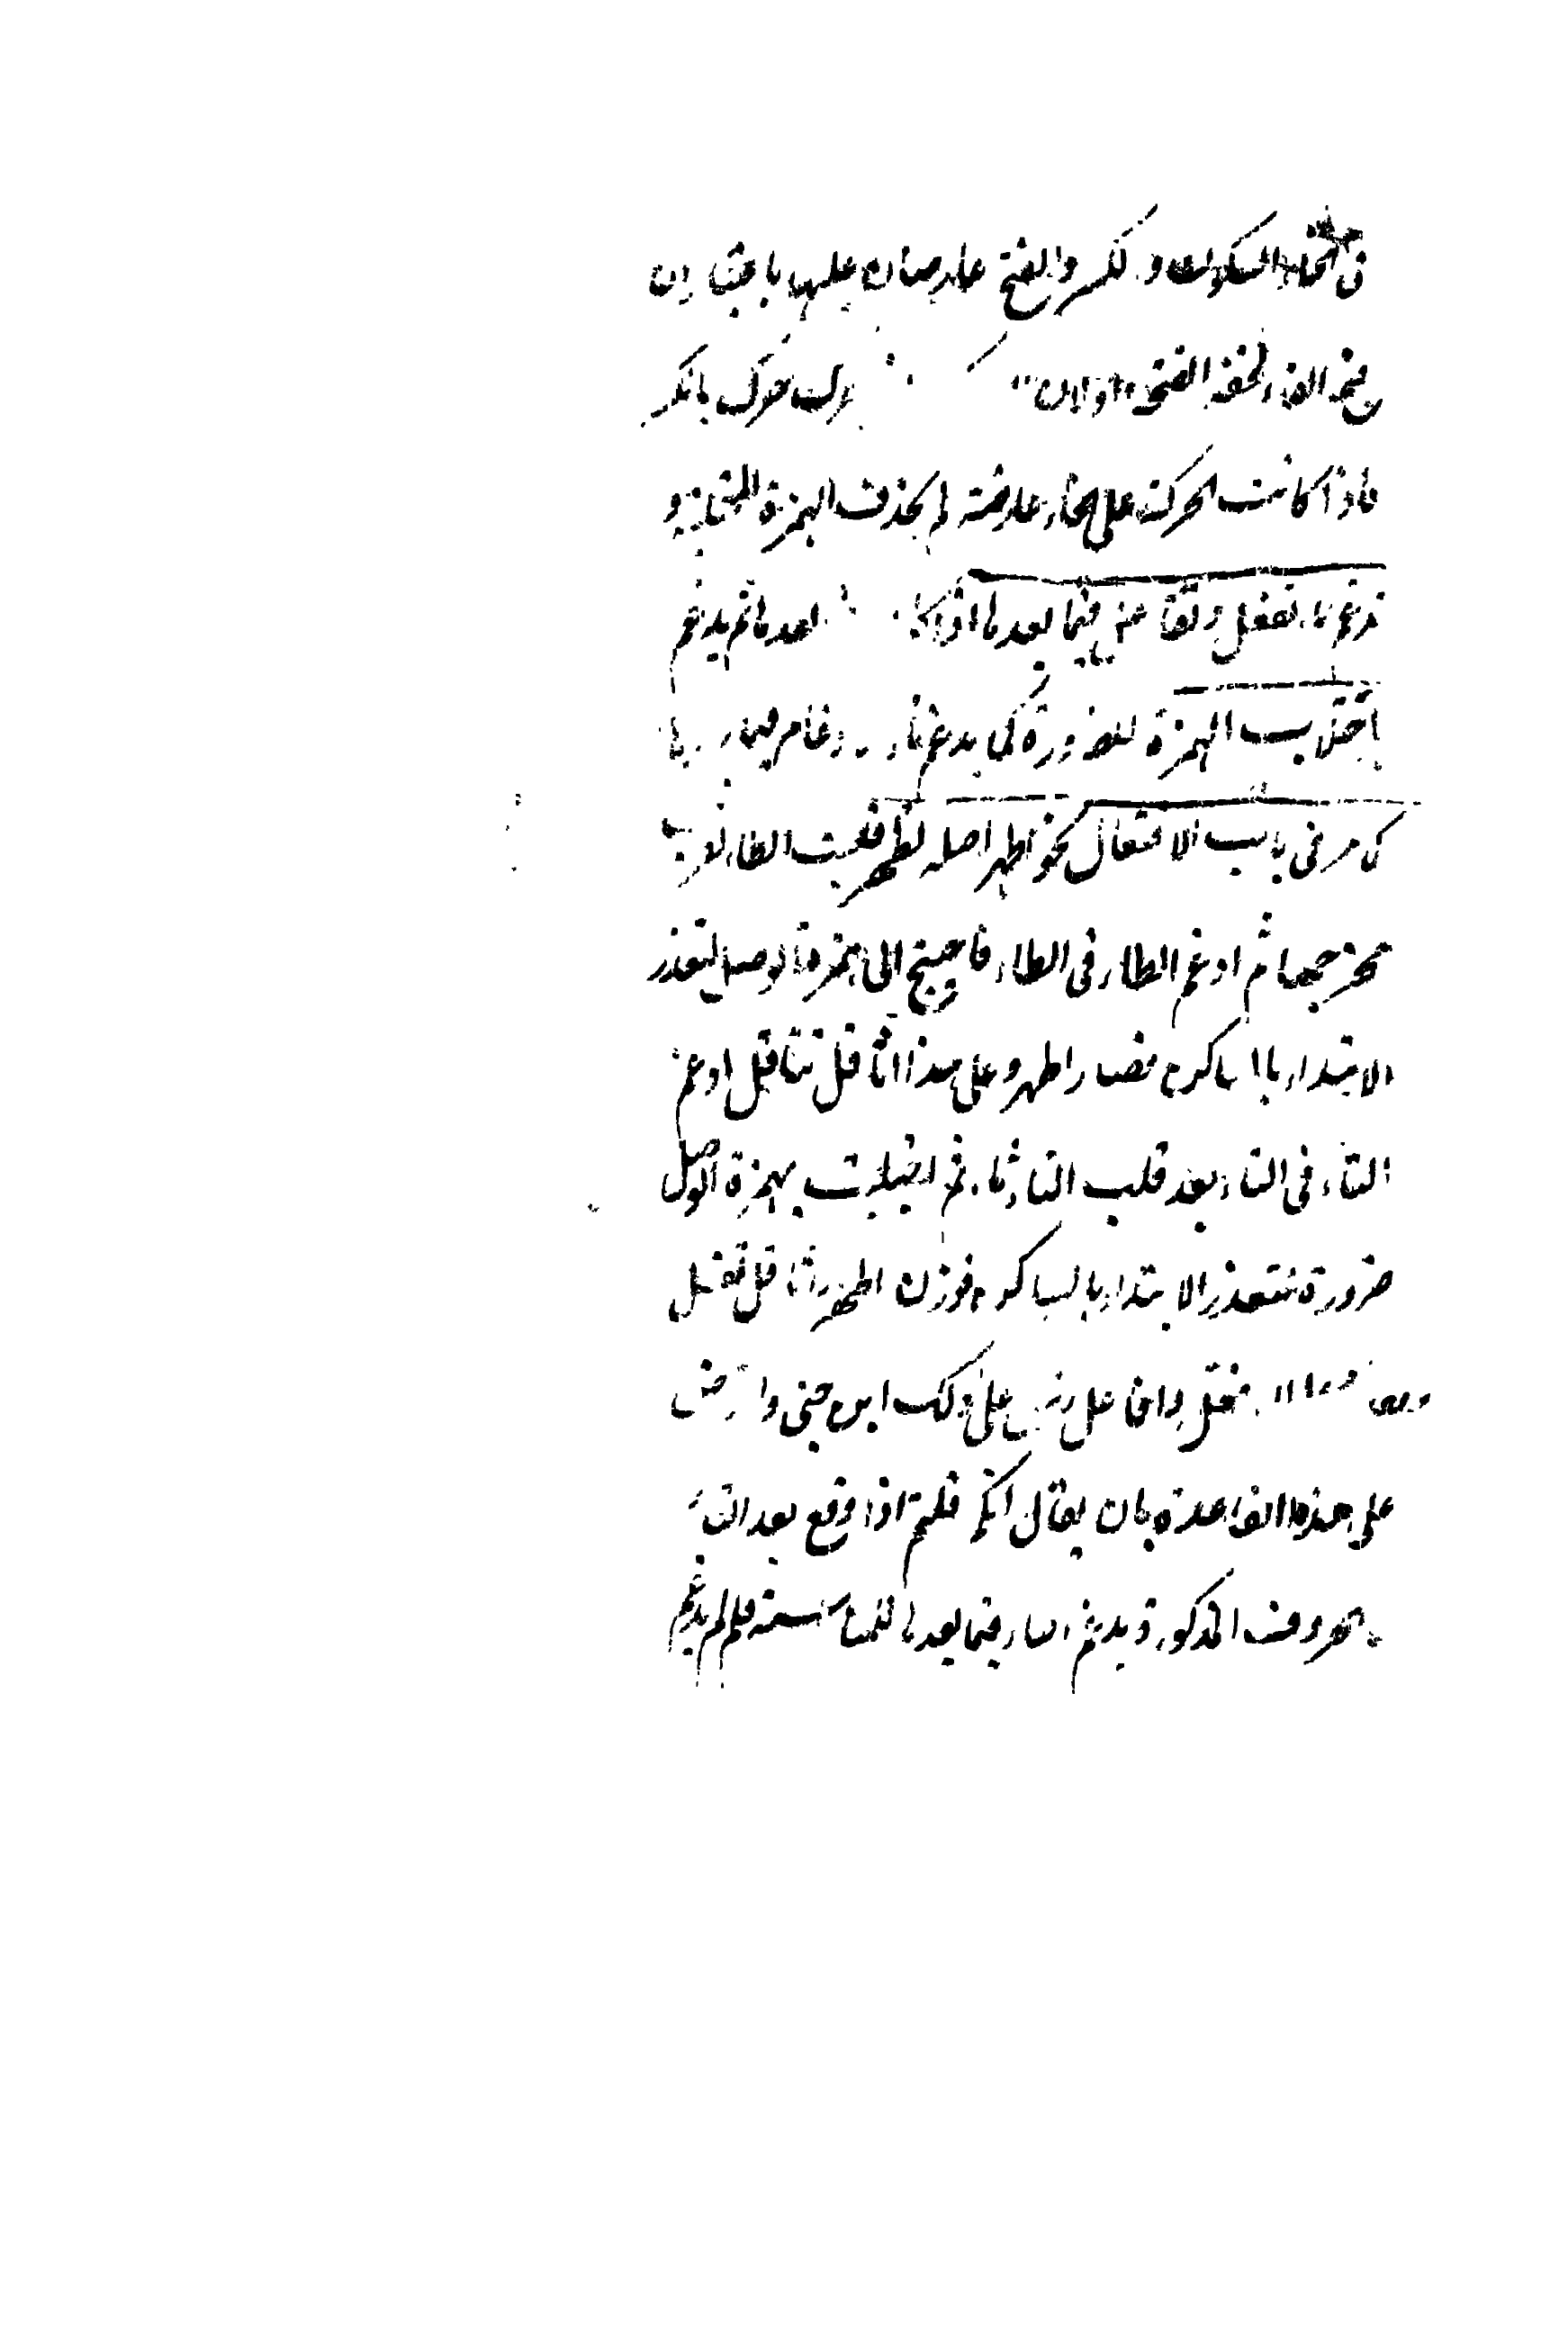 فى الخاء السكون والكسر والفتح عارضان عليها باعتبار ان
فتحة الفاء لخفة الفتحة اولان حرك بالكسر
فاذا كانت الحركة على الخاء عارضة لم يحذف الهمزة المجتلبة و
تدغم تاء تفعل وتفاعل فيما بعدها اذا كان بعدها ثم يدغم
باجتلاب الهمزة للضرورة كى يدغم تاء
كما مر فى باب الافتعال نحو اطهر اصله تطهر قلبت الطاء لقرب
مخرجهما ثم ادغم الطاء فى الطاء فاحتيج الى همزة الوصل لتعذر
الابتداء بالساكن فصار اطهر وعلى هذا اثاقل تثاقل ادغم
التاء فى الثاء بعد قلب التاء ثاء ثم اجتلبت بهمزة الوصل
ضرورة تتعذر الابتداء بالساكن فوزن اطهر واثاقل تفعل
وتفاعل لا افعل وافاعل نص على ذلك ابن جنى واعترض
على هذه القاعدة بان يقال انكم قلتم اذا وقع بعد التاء
الحروف المذكورة يدغم التاء فيما بعدها للمناسبة فلم لم يدغم